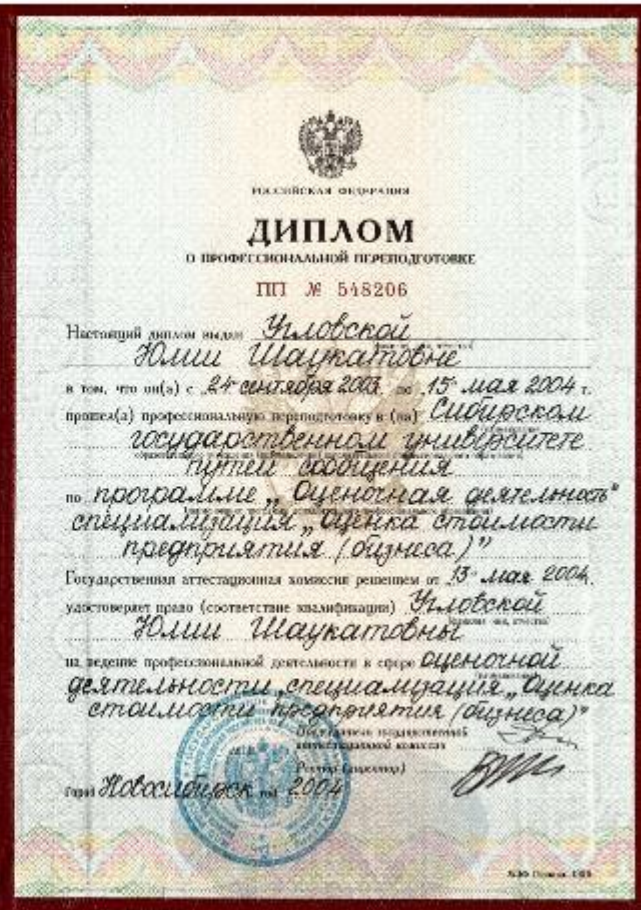 РОССИЙСКАЯ ФЕДЕРАЦИЯ
ДИПЛОМ
О ПРОФЕССИОНАЛЬНОЙ ПЕРЕПОДГОТОВКЕ
ПП № 548206
Настоящий диплом выдан Угловской
Юлии Шаукатовне
в том, что он(а) с 24 сентября 2003 по 15 мая 2004 г.
прошел(а) профессиональную переподготовку в (на) Сибирском
государственном университете
путей сообщения
по программе „Оценочная деятельность"
специализация „Оценка стоимости
предприятия (бизнеса)"
Государственная аттестационная комиссия решением от 13 мая 2004
удостоверяет право (соответствие квалификации) Угловской
Юлии Шаукатовны
на ведение профессиональной деятельности в сфере оценочной
деятельности, специализация „Оценка
стоимости предприятия (бизнеса)"
Председатель государственной
аттестационной комиссии
Ректор (директор)
Город Новосибирск год 2004